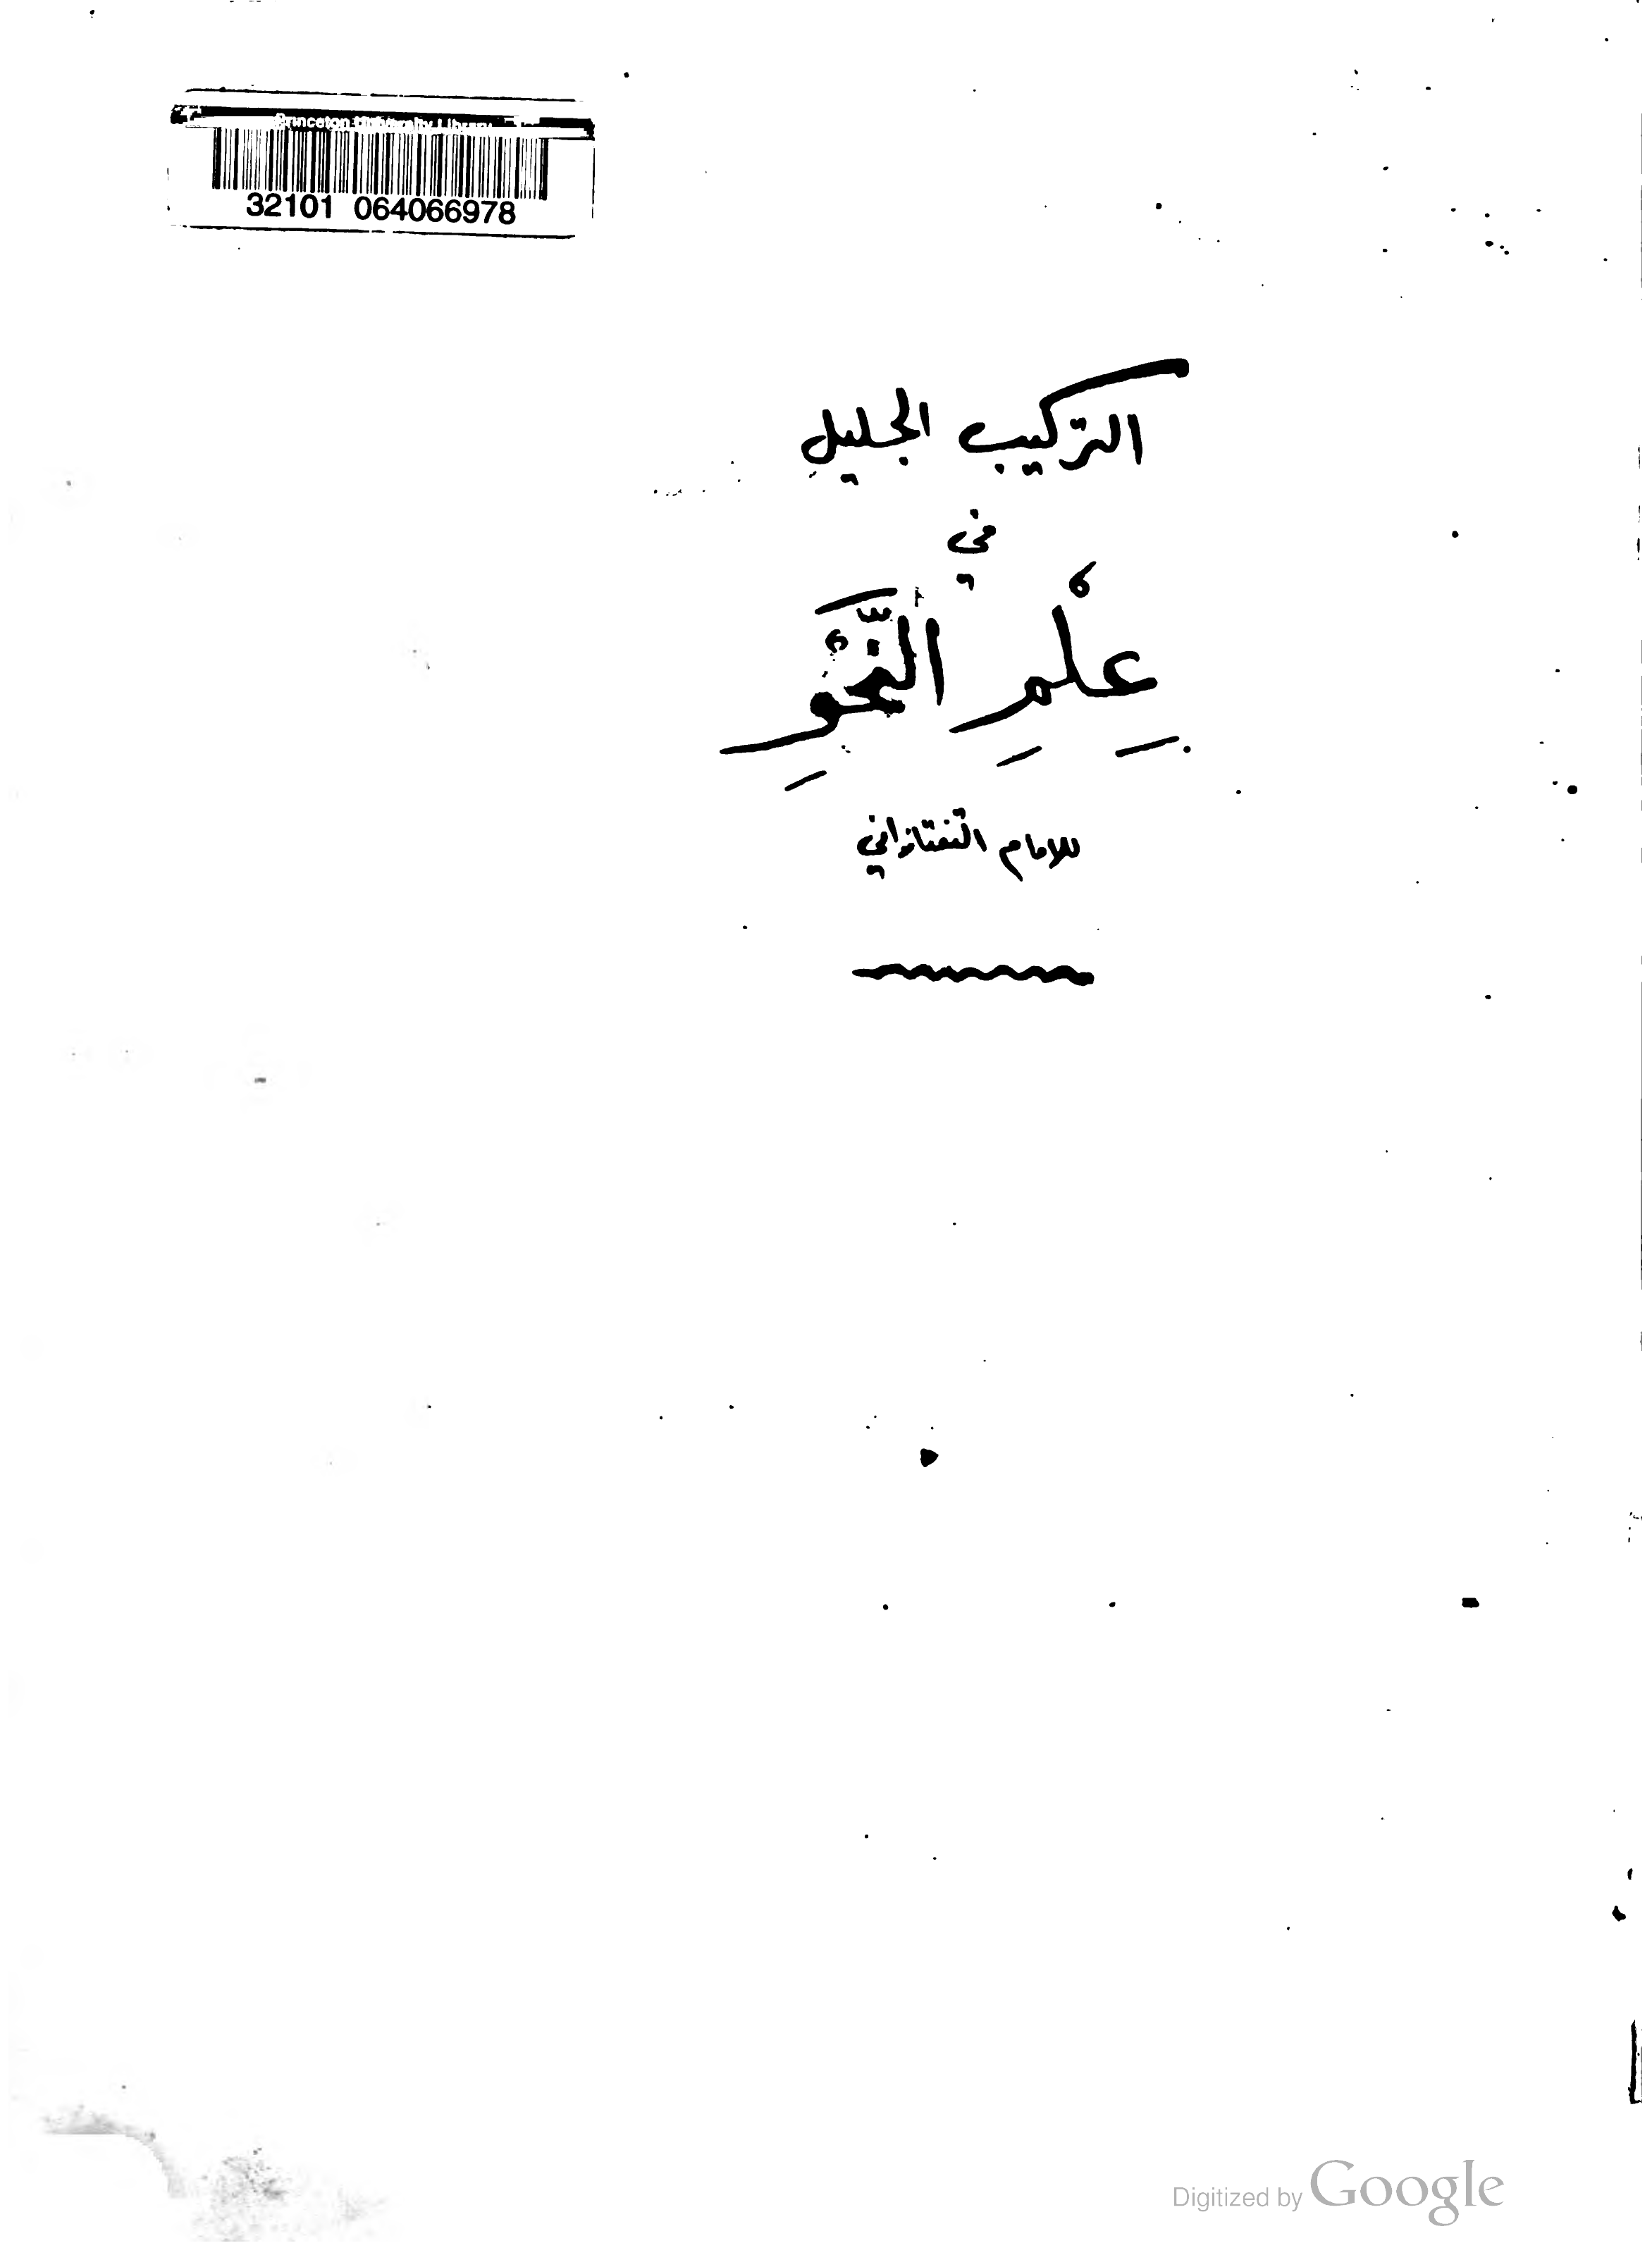 Princeton University Library
32101 064066978
التركيب الجليل
في
عِلْمِ النَّحْوِ
للامام التفتازاني
Digitized by Google